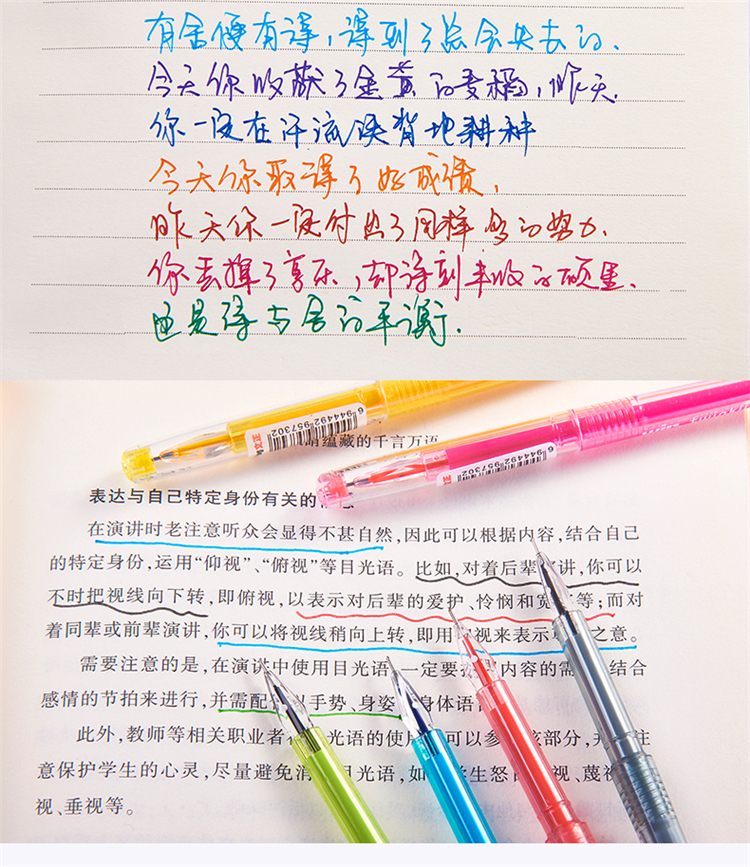 有舍便有得，得到了总会失去的．
今天你收获了金黄的麦穗，昨天．
你一定在汗流浃背地耕种
今天你取得了好成绩，
昨天你一定付出了同样多的努力．
你丢掉了享乐，却得到丰收的硕果．
这是得与舍的平衡．
6 944492 957302
6 944492 957302
蕴藏的千言万语
表达与自己特定身份有关的
在演讲时老注意听众会显得不甚自然，因此可以根据内容，结合自己
的特定身份，运用“仰视”、“俯视”等目光语。比如，对着后辈演讲，你可以
不时把视线向下转，即俯视，以表示对后辈的爱护、怜悯和宽等；而对
着同辈或前辈演讲，你可以将视线稍向上转，即用视来表示之意。
需要注意的是，在演讲中使用目光语一定要内容的需结合
感情的节拍来进行，并需配手势、身姿身体语
此外，教师等相关职业者光语的使可以参该部分，注
意保护学生的心灵，尽量避免消目光语，如学生怒视、蔑
视、垂视等。